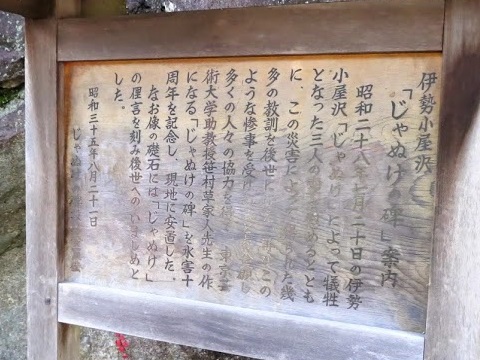 伊勢小屋沢
「じゃぬけの碑」案内
昭和二十八年 月二十日の伊勢
小屋沢「じゃぬけ」によって犠牲
となった三人の 慰めるととも
に、この災害によ れた幾
多の教訓を後世に この
ような惨事を受け
多くの人々の協力を得て 東京芸
術大学助教授笹村草家人先生の作
になる「じゃぬけの碑」を水害十
周年を記念し、現地に安置した。
なお像の礎石には「じゃぬけ」
の俚言を刻み後世へのいましめと
した。
昭和三十五年八月二十一日
じゃぬけ